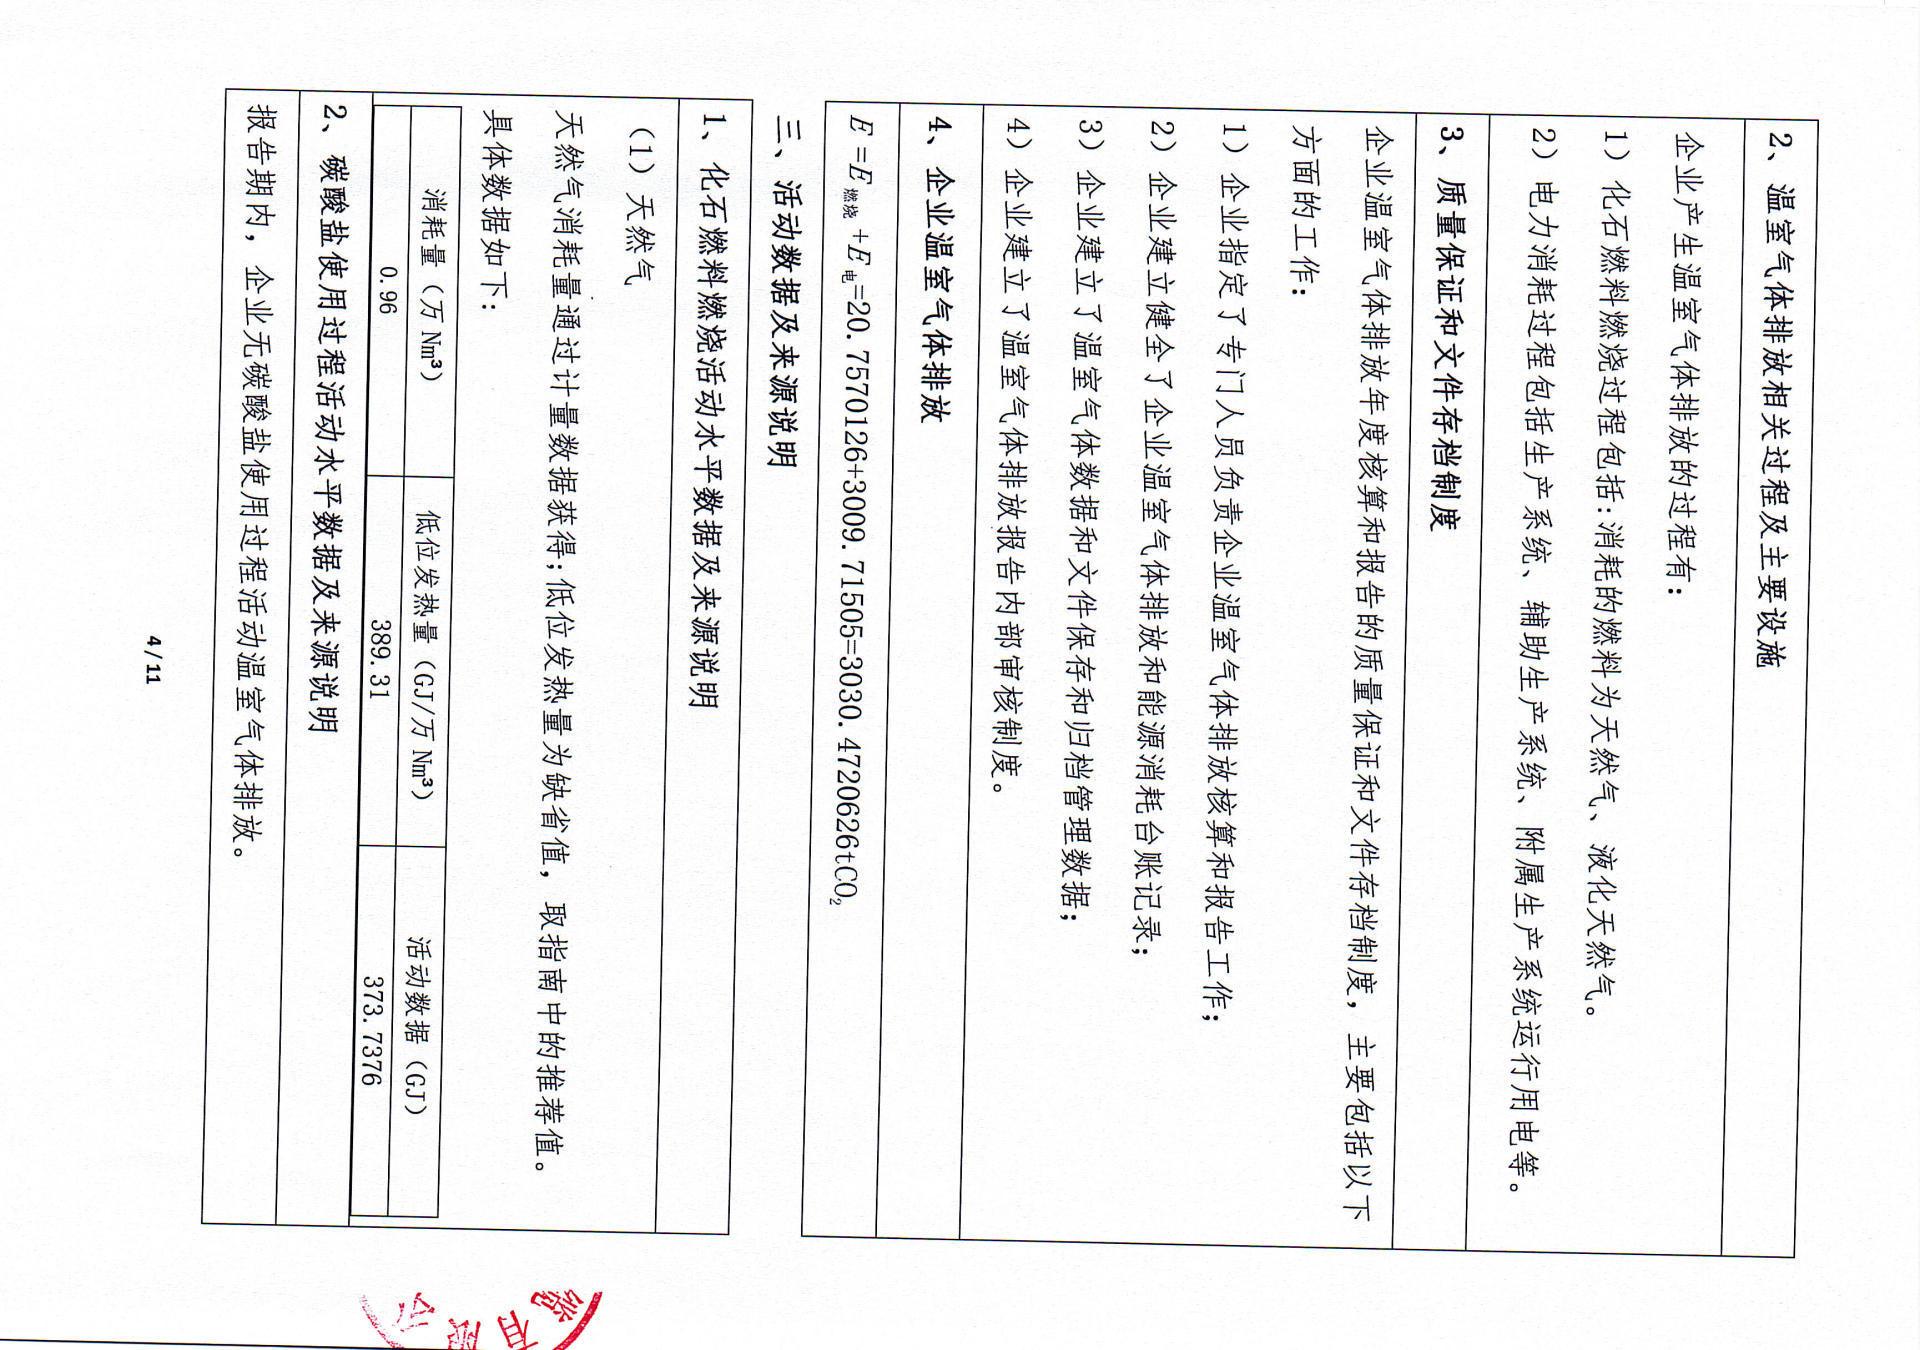 2、温室气体排放相关过程及主要设施
企业产生温室气体排放的过程有：
1）化石燃料燃烧过程包括：消耗的燃料为天然气、液化天然气。
2）电力消耗过程包括生产系统、辅助生产系统、附属生产系统运行用电等。
3、质量保证和文件存档制度
企业温室气体排放年度核算和报告的质量保证和文件存档制度，主要包括以下
方面的工作：
1）企业指定了专门人员负责企业温室气体排放核算和报告工作；
2）企业建立健全了企业温室气体排放和能源消耗台账记录；
3）企业建立了温室气体数据和文件保存和归档管理数据；
4）企业建立了温室气体排放报告内部审核制度。
4、企业温室气体排放
E=E燃烧+E电=20.7570126+3009.71505=3030.4720626tCO₂
三、活动数据及来源说明
1、化石燃料燃烧活动水平数据及来源说明
（1）天然气
天然气消耗量通过计量数据获得；低位发热量为缺省值，取指南中的推荐值。
具体数据如下：
消耗量（万Nm³） 低位发热量（GJ/万Nm³） 活动数据（GJ）
0.96 389.31 373.7376
2、碳酸盐使用过程活动水平数据及来源说明
报告期内，企业无碳酸盐使用过程活动温室气体排放。
4/11
有限公